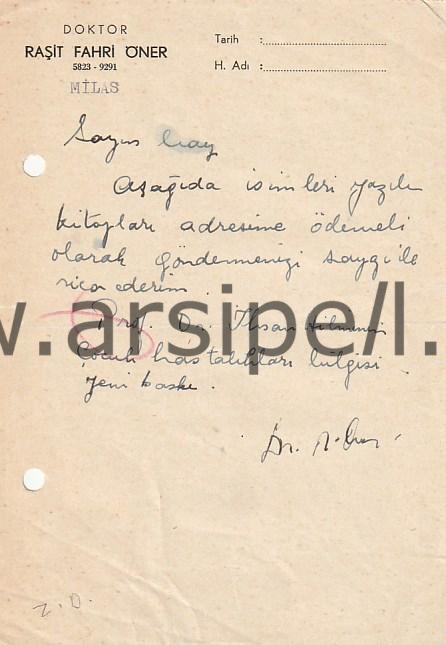 DOKTOR
RAŞİT FAHRİ ÖNER
5823 - 9291
MİLAS
Tarih :
H. Adı :
Sayın Bay
Aşağıda isimleri yazılı
kitapları adresime ödemeli
olarak göndermenizi saygı ile
rica ederim.
Prof. Dr. İhsan
Çocuk hastalıkları bilgisi
Yeni baskı.
Dr. R. Öner
w.arsipe/l.